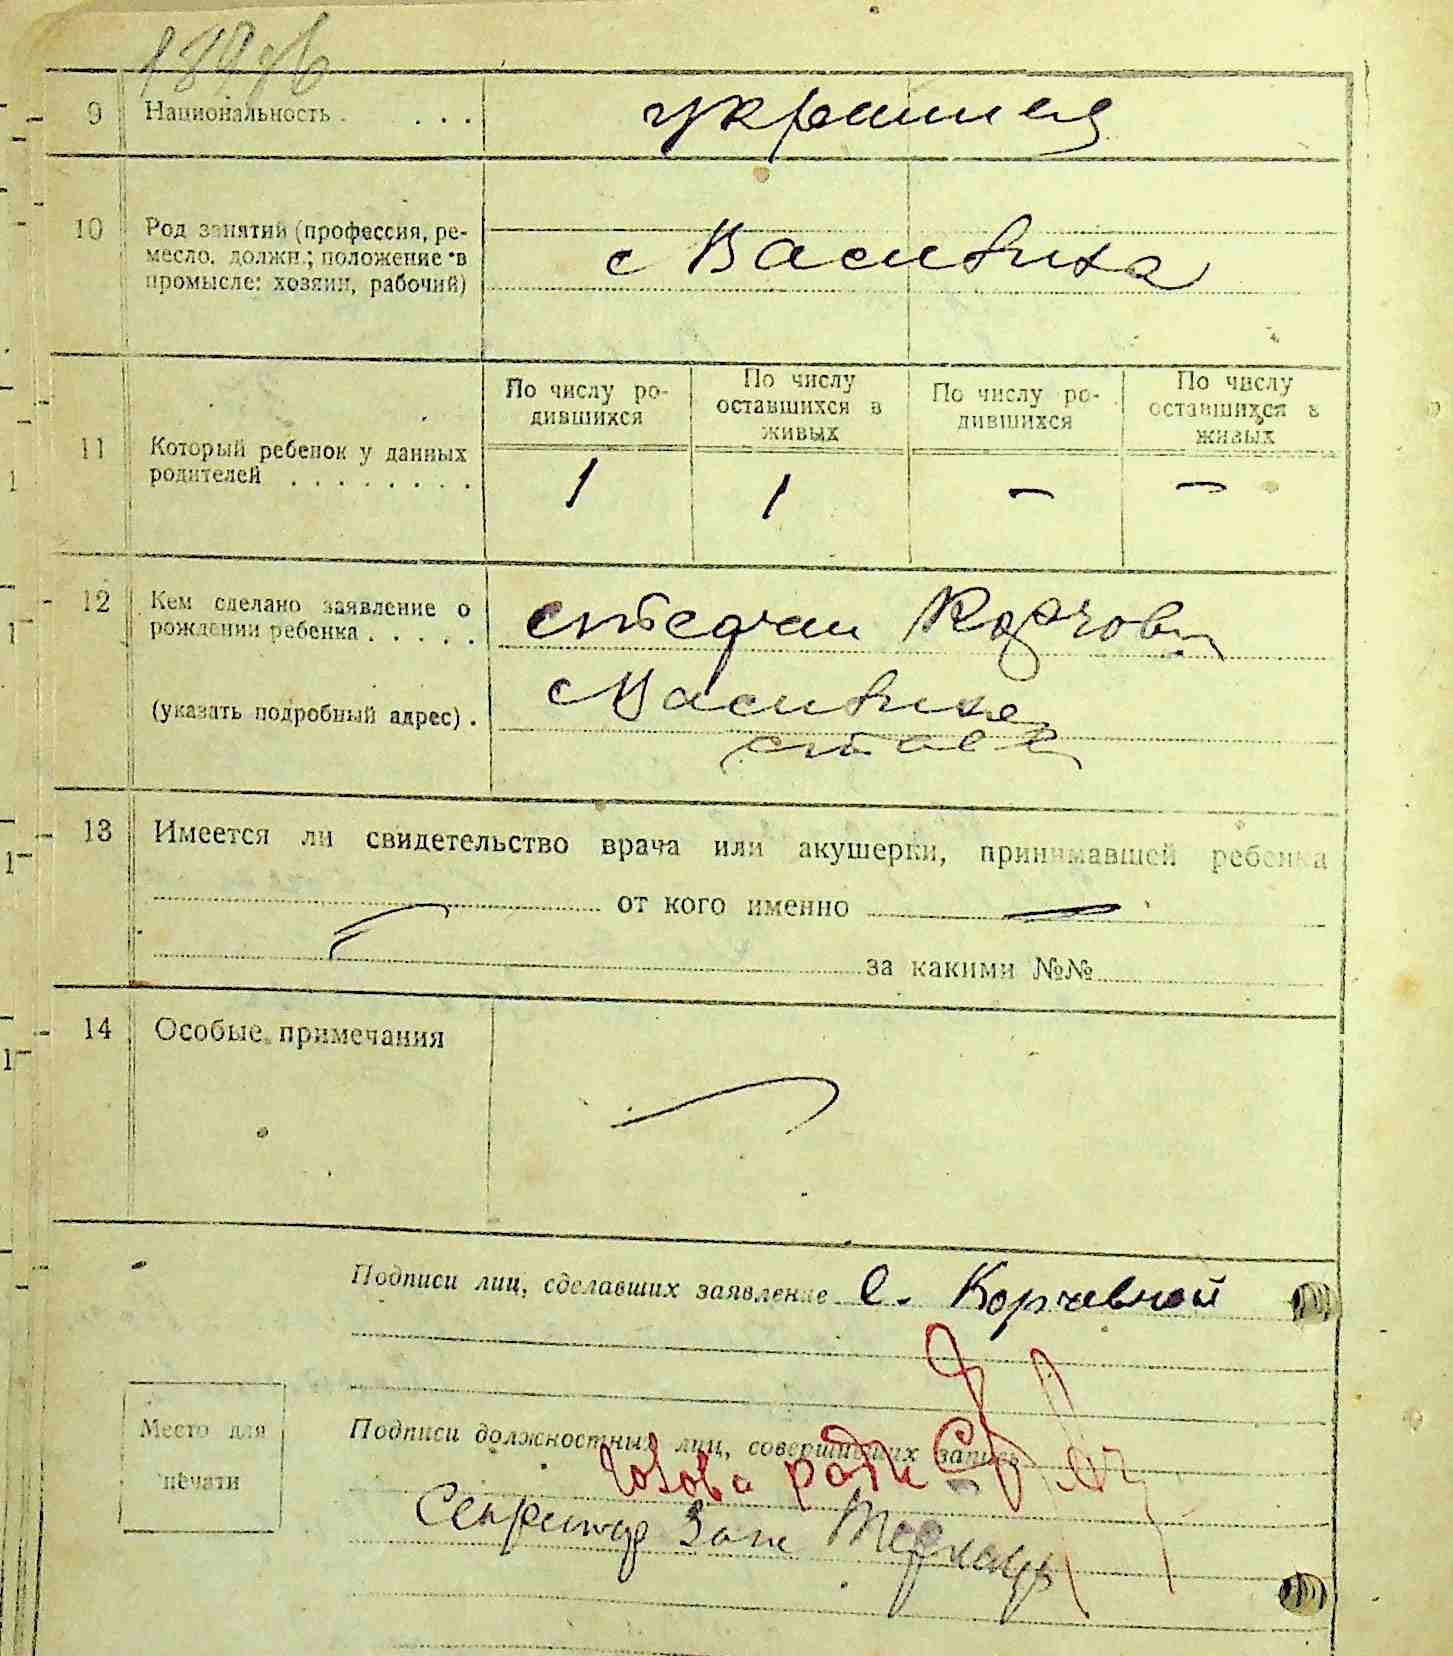 9 Национальность . . . . украинец
10 Род занятий (профессия, ре-
месло, должн.; положение в
промысле: хозяин, рабочий)
с Василивка
11 Который ребенок у данных
родителей . . . . . . . .
По числу ро-
дившихся
По числу
оставшихся в
живых
По числу ро-
дившихся
По числу
оставшихся в
живых
1 1 — —
12 Кем сделано заявление о
рождении ребенка . . . . .
(указать подробный адрес) .
степан
с Василивка
13 Имеется ли свидетельство врача или акушерки, принимавшей ребенка
от кого именно —
за какими №№
14 Особые примечания
Подписи лиц, сделавших заявление С. Корчевной
Подписи должностных лиц, совершивших запись
Место для
печати
Голова ради
Секретар